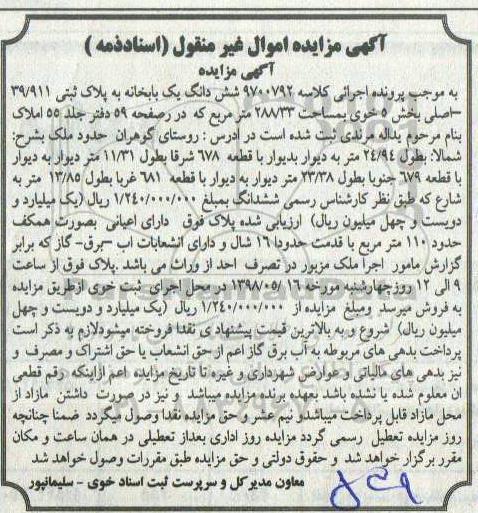 آگهی مزایده اموال غیر منقول (اسنادذمه )
آگهی مزایده
به موجب پرونده اجرائی کلاسه ۹۷۰۰۷۹۲ شش دانگ یک بابخانه به پلاک ثبتی ۳۹/۹۱۱
-اصلی بخش ۵ خوی بمساحت ۲۸۸/۳۳ متر مربع که در صفحه ۵۹ دفتر جلد ۵۵ املاک
بنام مرحوم یداله مرندی ثبت شده است در ادرس : روستای گوهران حدود ملک بشرح:
شمالا: بطول ۲۴/۹۴ متر به دیوار بدیوار با قطعه ۶۷۸ شرقا بطول ۱۱/۳۱ متر دیوار به دیوار
با قطعه ۶۷۹ جنوبا بطول ۲۳/۳۸ متر دیوار به دیوار با قطعه ۶۸۱ غربا بطول ۱۳/۸۵ متر به
شارع که طبق نظر کارشناس رسمی ششدانگ بمبلغ ۱/۲۴۰/۰۰۰/۰۰۰ ریال (یک میلیارد و
دویست و چهل میلیون ریال) ارزیابی شده پلاک فوق دارای اعیانی بصورت همکف
حدود ۱۱۰ متر مربع با قدمت حدودا ۱۶ سال و دارای انشعابات اب -برق- گاز که برابر
گزارش مامور اجرا ملک مزبور در تصرف احد از وراث می باشد .پلاک فوق از ساعت
۹ الی ۱۲ روزچهارشنبه مورخه ۱۳۹۸/۰۵/۱۶ در محل اجرای ثبت خوی ازطریق مزایده
به فروش میرسد ومبلغ مزایده از ۱/۲۴۰/۰۰۰/۰۰۰ ریال (یک میلیارد و دویست و چهل
میلیون ریال) شروع و به بالاترین قیمت پیشنهاد ی نقدا فروخته میشودلازم به ذکر است
پرداخت بدهی های مربوطه به آب برق گاز اعم از حق انشعاب یا حق اشتراک و مصرف و
نیز بدهی های مالیاتی و عوارض شهرداری و غیره تا تاریخ مزایده اعم ازاینکه رقم قطعی
ان معلوم شده یا نشده باشد بعهده برنده مزایده میباشد و نیز در صورت داشتن مازاد از
محل مازاد قابل پرداخت میباشدو نیم عشر و حق مزایده نقدا وصول میگردد ضمنا چنانچه
روز مزایده تعطیل رسمی گردد مزایده روز اداری بعداز تعطیلی در همان ساعت و مکان
مقرر برگزار خواهد شد و حقوق دولتی و حق مزایده طبق مقررات وصول خواهد شد
معاون مدیر کل و سرپرست ثبت اسناد خوی - سلیمانپور